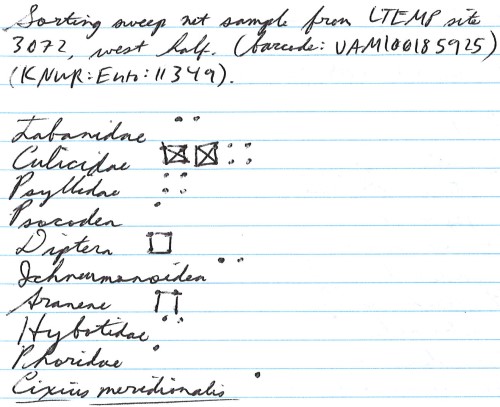 Sorting sweep net sample from LTEMP site
3072, west half. (barcode: UAM100185925)
(KNWR:Ento:11349).
Tabanidae
Culicidae
Psyllidae
Psocodea
Diptera
Ichneumonoidea
Araneae
Hybotidae
Phoridae
Cixius meridionalis